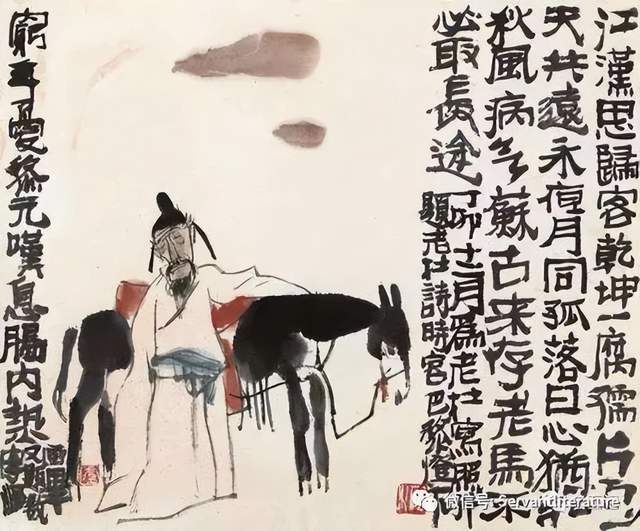 江漢思歸客乾坤一腐儒片云
天共遠永夜月同孤落日心猶
秋風病蘇古来存老馬不
必取長途
丁卯十二月爲老杜寫照
題老杜詩時官巴黎
窮年憂黎元嘆息腸內熱
微信号: Servandliterature